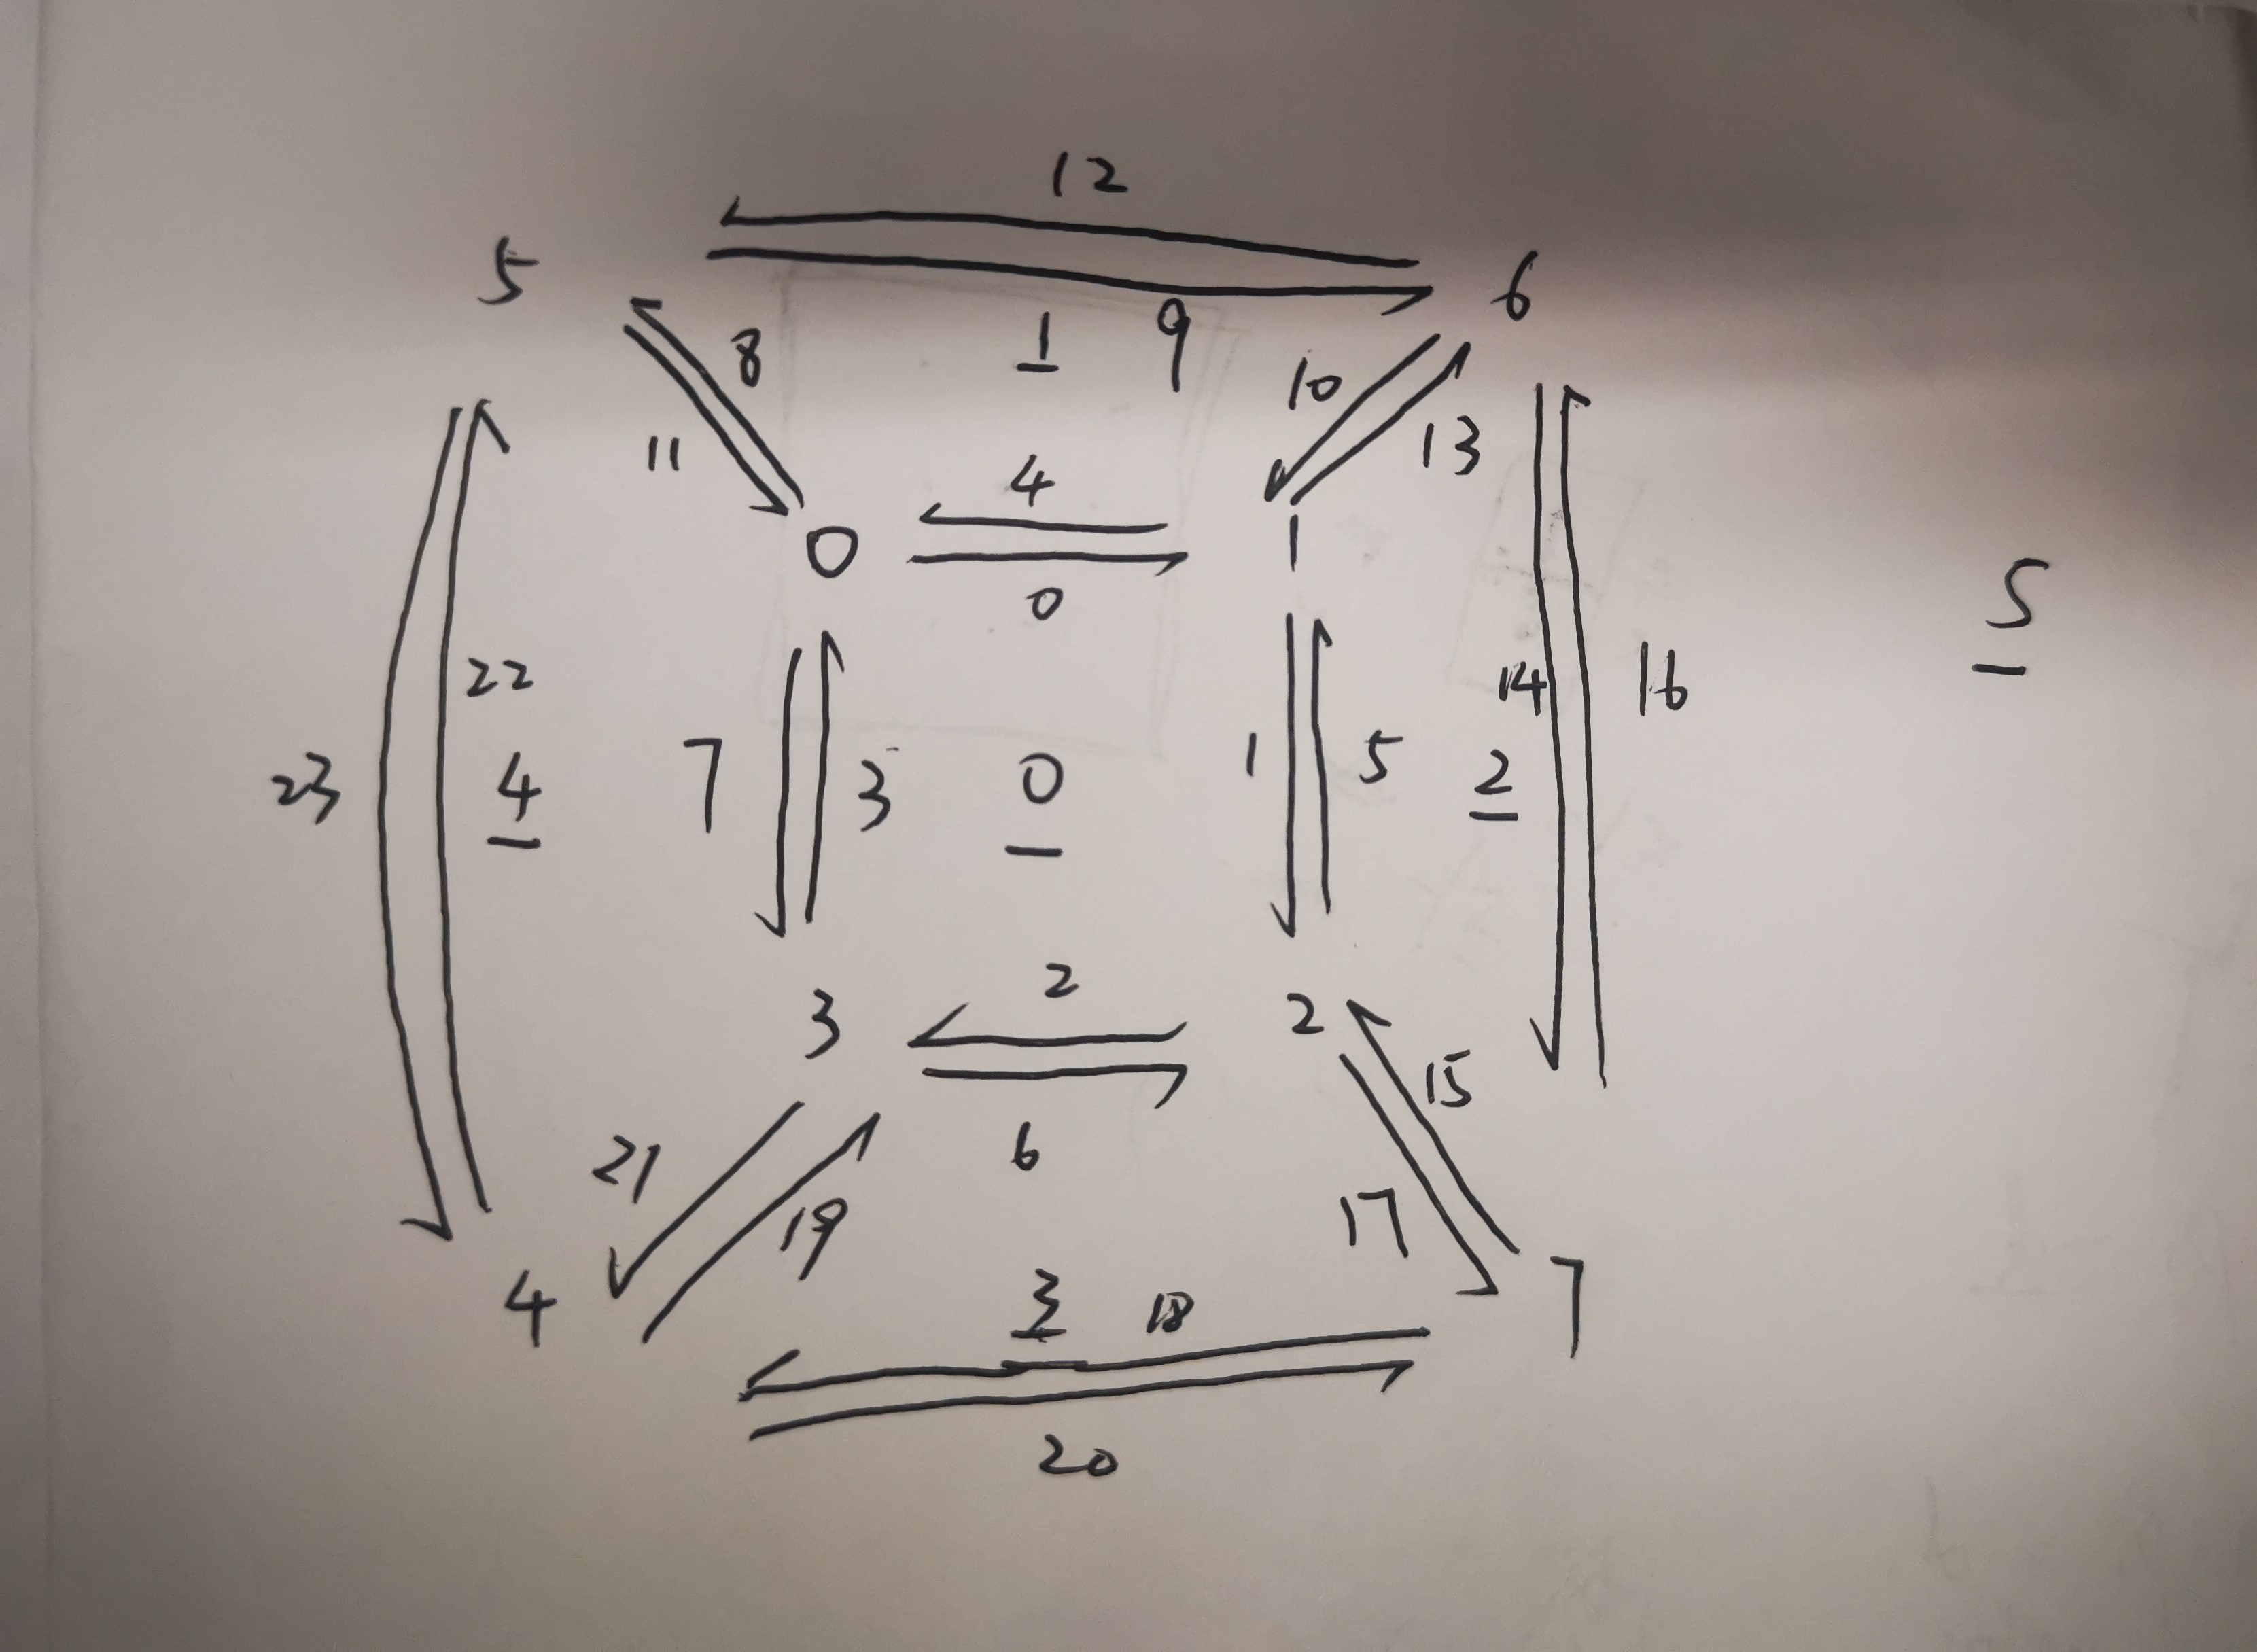 12
5 6
8 1 9 10
11 4 13
0 1
0 5
22 14 16
23 4 7 3 0 1 5 2
2
3 2
15
21 6
19 17
4 3 18 7
20